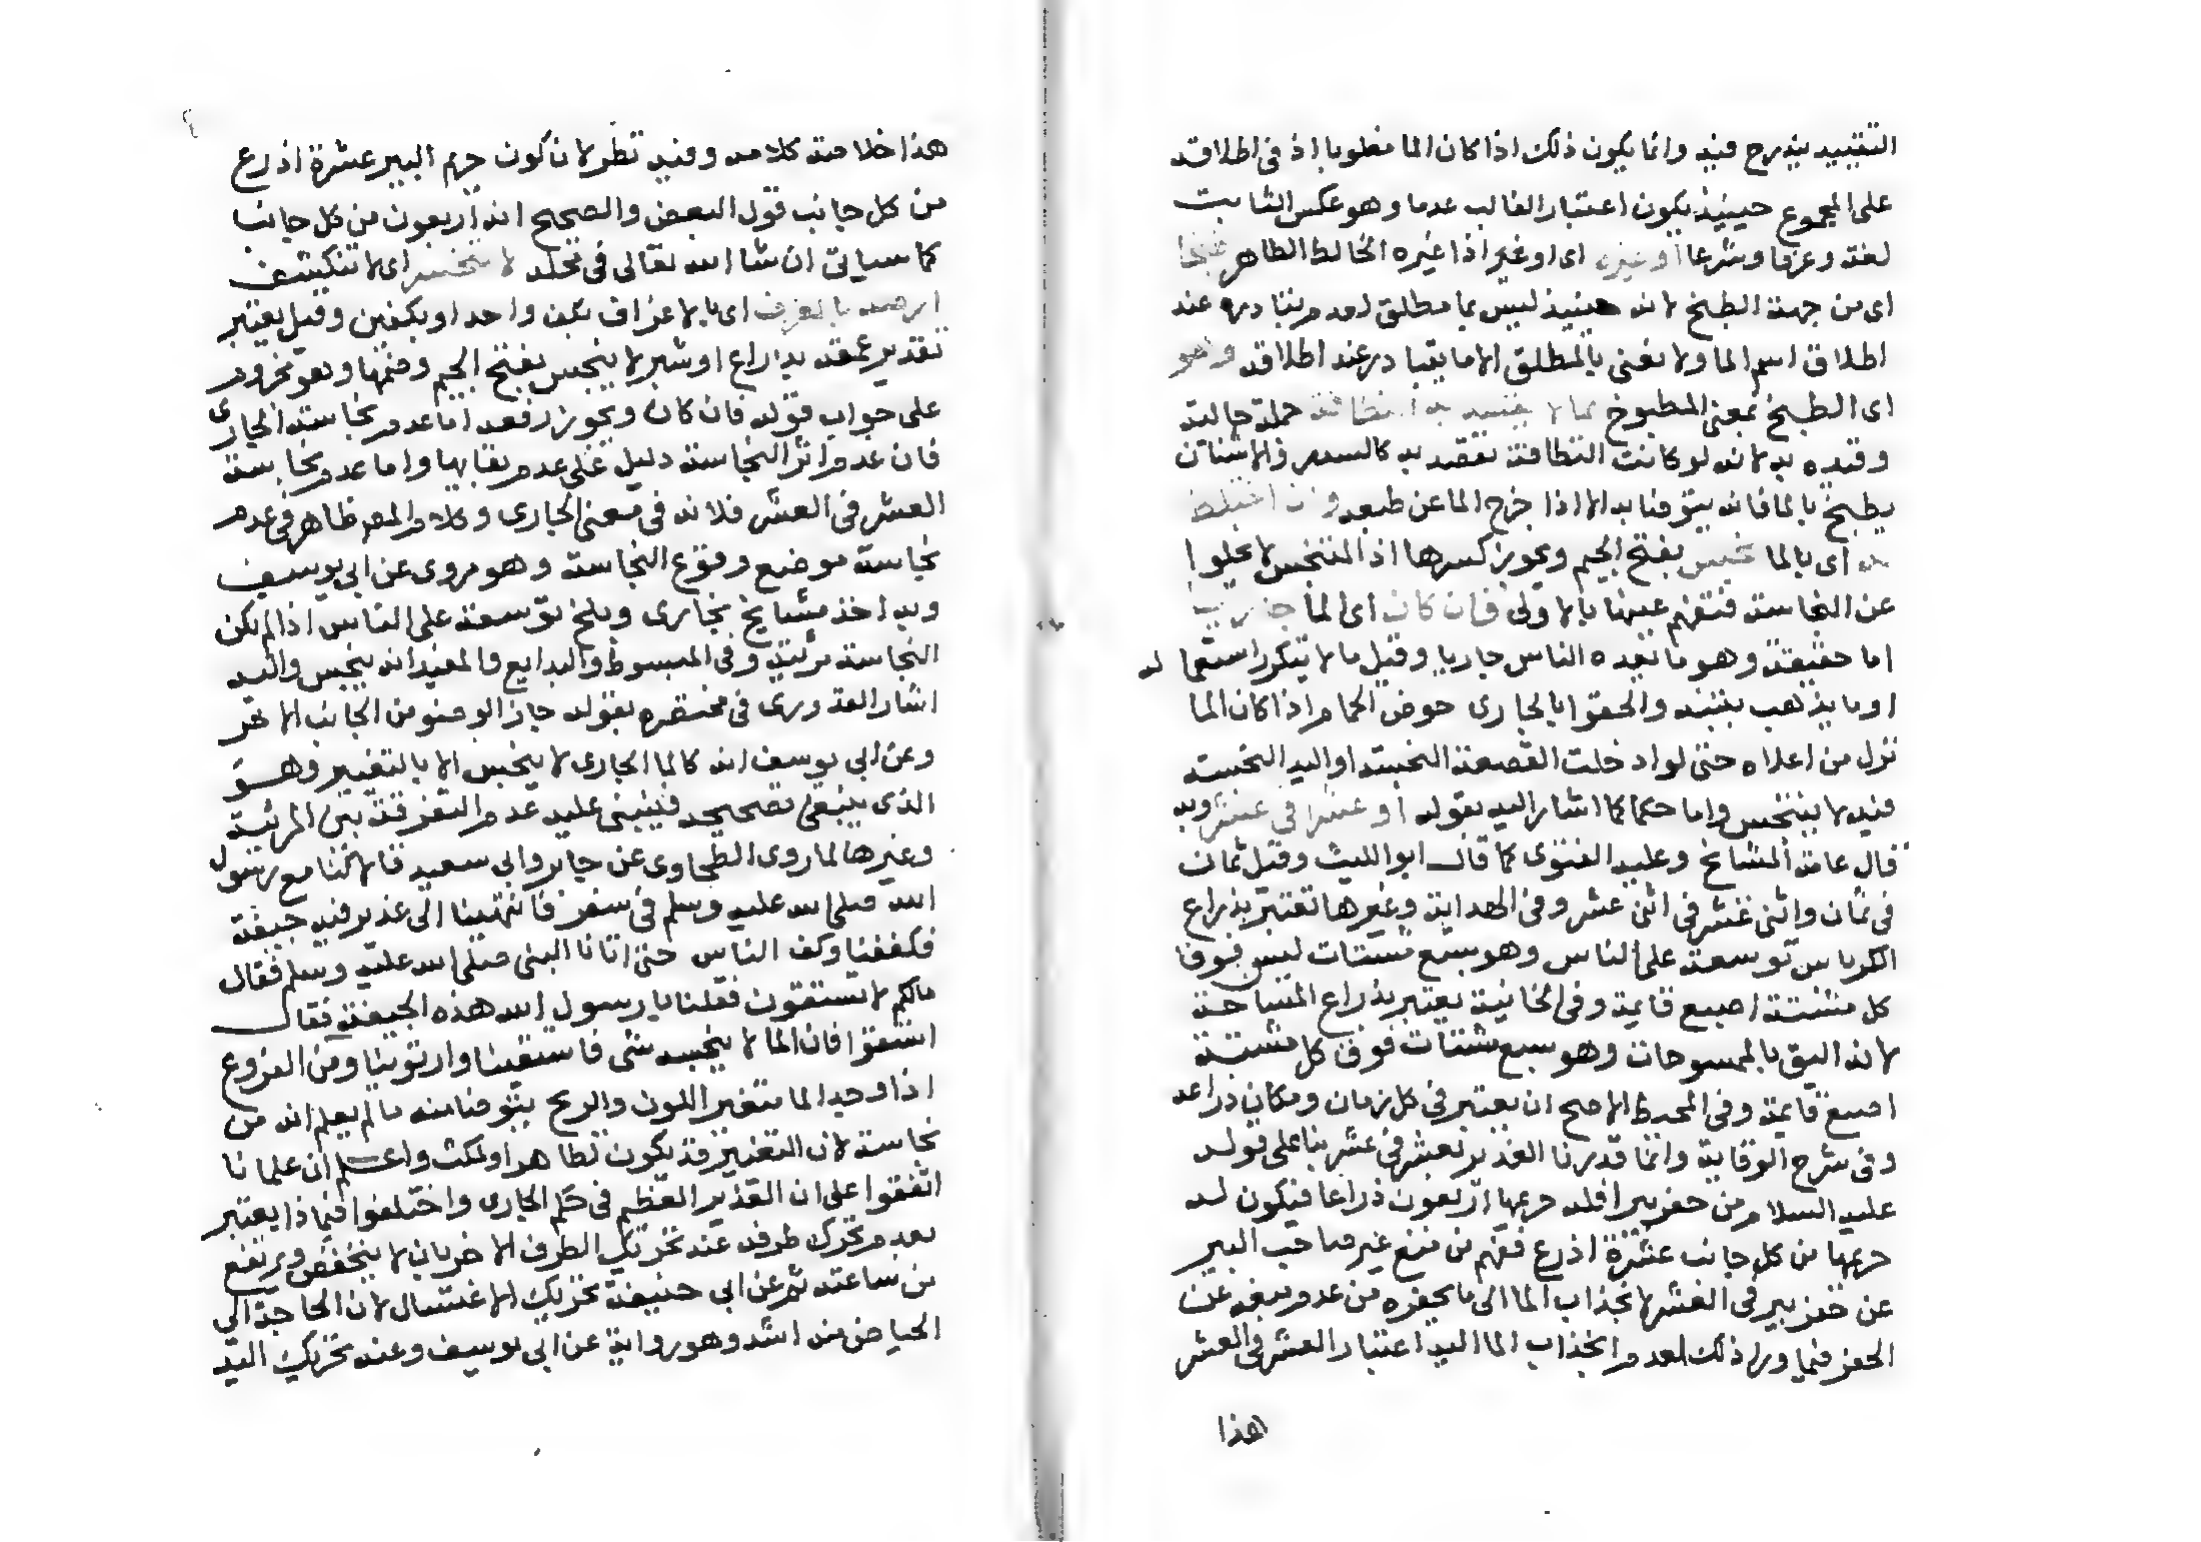 التقييد يندرج فيه وانما يكون ذلك اذا كان الما مغلوبا اذ فى اطلاقه
على المجموع حينيذ يكون اعتبار الغالب عدما وهو عكس الثابت
لغة وعرفا وشرعا او غيره اى او غير اذا غيره الخالط الطاهر طبخا
اى من جهة الطبخ لانه حينيذ ليس بما مطلق لعدم تبادره عند
اطلاق اسم الما ولا نعنى بالمطلق الا ما يتبادر عند اطلاقه وهو
اى الطبخ بمعنى المطبوخ مما لا يقصد به النظافة جملة حالية
وقيده به لانه لو كانت النظافة تقصد به كالسدر والاشنان
يطبخ بالما فانه يتوضا به الا اذا خرج الما عن طبعه وان اختلط
به اى بالما نجس بفتح الجيم ويجوز كسرها اذ المتنجس لا يخلوا
عن النجاسة فتفهم عينها بالاولى فان كان اى الما جاريا
اما حقيقة وهو ما تعده الناس جاريا وقيل ما لا يتكرر استعماله
او ما يذهب بتبنه والحقوا بالجارى حوض الحمام اذا كان الما
نزل من اعلاه حتى لو ادخلت القصعة النجسة او اليد النجسة
فيه لا يتنجس واما حكما كما اشار اليه بقوله او عشرا فى عشر وبه
قال عامة المشايخ وعليه الفتوى كما قال ابو الليث وقيل ثمان
فى ثمان واثنى عشر فى اثنى عشر وفى الهداية وغيرها تعتبر بذراع
الكرباس توسعة على الناس وهو سبع مشتات ليس فوق
كل مشتة اصبع قايمة وفى الخانية يعتبر بذراع المساحة
لانه اليق بالممسوحات وهو سبع مشتات فوق كل مشتة
اصبع قايمة وفى المحيط الاصح ان يعتبر فى كل زمان ومكان ذراعه
وفى شرح الوقاية وانما قدرنا الغدير بعشر فى عشر بنا على قوله
عليه السلام من حفر بيرا فله حريمها اربعون ذراعا فيكون له
حريمها من كل جانب عشرة اذرع ففهم من منع غير صاحب البير
عن حفر بير فى العشر لانجذاب الما الى ما يحفره من عدم منعه عن
الحفر فيما ورا ذلك لعدم انجذاب الما اليه اعتبار العشر فى العشر
هذا
هذا خلاصة كلامه وفيه نظر لان كون حريم البير عشرة اذرع
من كل جانب قول البعض والصحيح انه اربعون من كل جانب
كما سياتى ان شا الله تعالى فى محله لا تنحسر اى لا تنكشف
ارضه بالغرف اى بالاغراف بكف واحد او بكفين وقيل يعتبر
تقدير عمقه بذراع او شبر لا ينجس بفتح الجيم وضمها وهو مجزوم
على جواب قوله فان كان ويجوز رفعه اما عدم نجاسة الجارى
فان عدم اثر النجاسة دليل على عدم بقايها واما عدم نجاسة
العشر فى العشر فلانه فى معنى الجارى وكلام المص ظاهر فى عدم
نجاسة موضع وقوع النجاسة وهو مروى عن ابى يوسف
وبه اخذ مشايخ بخارى وبلخ توسعة على الناس اذا لم تكن
النجاسة مرئية وفى المبسوط والبدايع والمفيد انه ينجس واليه
اشار القدورى فى مختصره بقوله جاز الوضو من الجانب الاخر
وعن ابى يوسف انه كالما الجارى لا ينجس الا بالتغيير وهو
الذى ينبغى تصحيحه فينبنى عليه عدم التفرقة بين المرئية
وغيرها لما روى الطحاوى عن جابر وابى سعيد قالا كنا مع رسول
الله صلى الله عليه وسلم فى سفر فانتهينا الى غدير فيه جيفة
فكففنا وكف الناس حتى اتانا النبى صلى الله عليه وسلم فقال
مالكم لا تستقون فقلنا يا رسول الله هذه الجيفة فقال
استقوا فان الما لا ينجسه شى فاستقينا وارتوينا ومن الفروع
اذا وجد الما متغير اللون والريح يتوضا منه ما لم يعلم انه من
نجاسة لان التغيير قد يكون بطاهر او لمكث واعلم ان علمانا
اتفقوا على ان الغدير العظيم فى حكم الجارى واختلفوا فيما ذا يعتبر
بعدم تحرك طرفه عند تحريك الطرف الاخر بان لا ينخفض ويرتفع
من ساعته ثم عن ابى حنيفة تحريك الاغتسال لان الحاجة الى
الحياض منه اشد وهو رواية عن ابى يوسف وعنه تحريك اليد